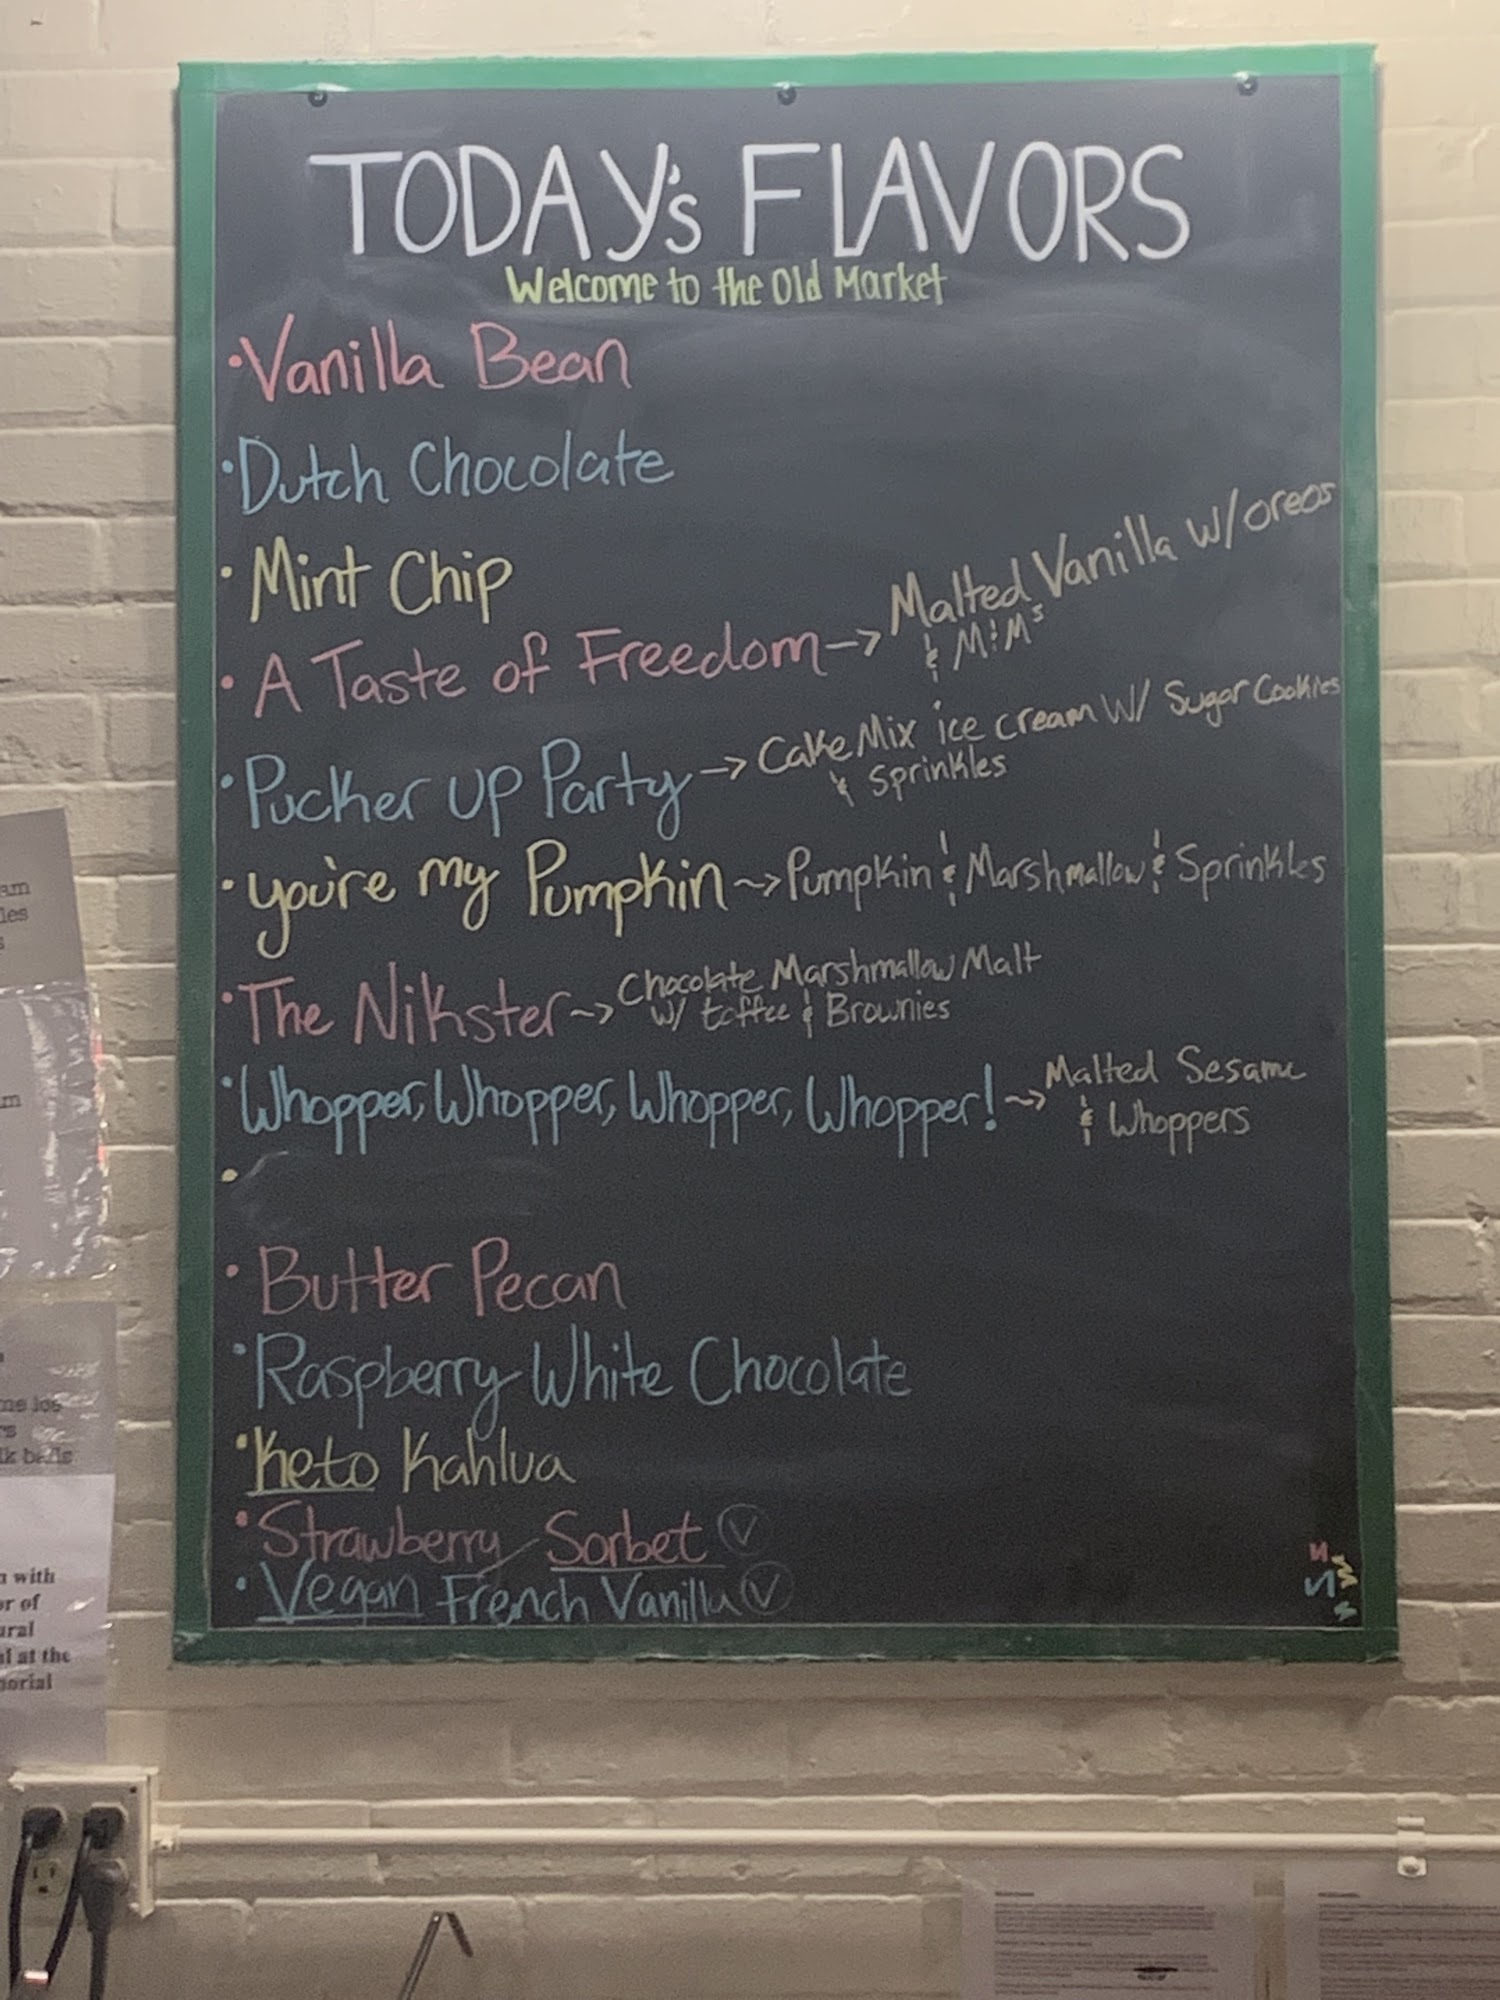 TODAY's FLAVORS
Welcome to the Old Market
• Vanilla Bean
• Dutch Chocolate
• Mint Chip
• A Taste of Freedom -> Malted Vanilla w/ oreos
& M&M's
• Pucker up Party -> Cake Mix ice cream w/ Sugar Cookies
& Sprinkles
• you're my Pumpkin ~> Pumpkin & Marshmallow & Sprinkles
• The Nikster ~> Chocolate Marshmallow Malt
w/ toffee & Brownies
• Whopper, Whopper, Whopper, Whopper! ~> Malted Sesame
& Whoppers
•
• Butter Pecan
• Raspberry White Chocolate
• Keto Kahlua
• Strawberry Sorbet V
• Vegan French Vanilla V
with
or of
at the